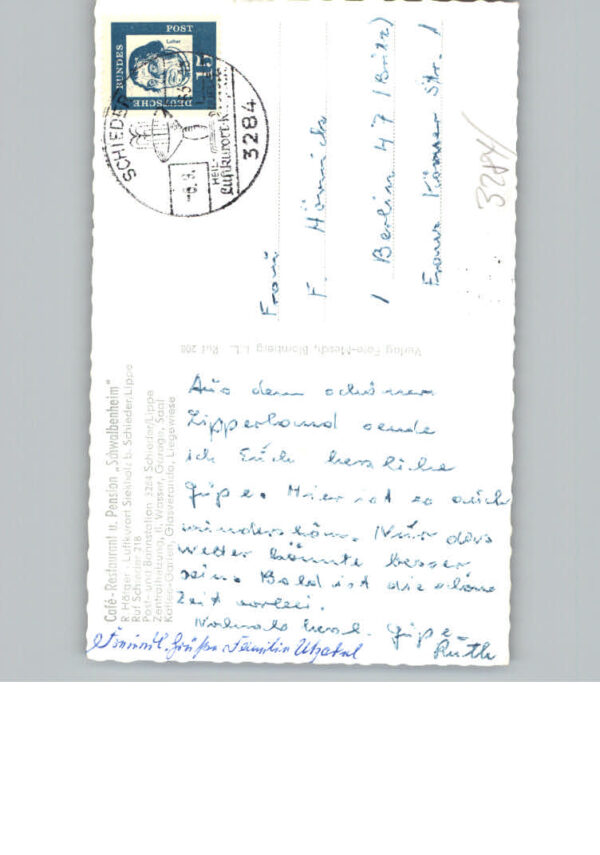 DEUTSCHE BUNDESPOST
15
Luther
SCHIEDER
-6.9.
HEIL-
Luftkurort
3284
Frau
F.
/ Berlin 47 (Britz)
Franz Körner Str. 1
3284/
Verlag Foto-Mesch, Blomberg i. L. Ruf 208
Café-Restaurant u. Pension „Schwalbenheim"
R. Härtel, Luftkurort Siekholz b. Schieder/Lippe
Ruf Schieder 218
Post- und Bahnstation 3284 Schieder/Lippe
Zentralheizung, fl. Wasser, Garage, Saal
Kaffee-Garten, Glasveranda, Liegewiese
Aus dem schönen
Lipperland sende
ich Euch herzliche
Grüße. Hier ist es auch
wunderschön. Nur das
Wetter könnte besser
sein. Bald ist die schöne
Zeit vorbei.
Nochmals herzl. Grüße
Ruth
Grüße Familie